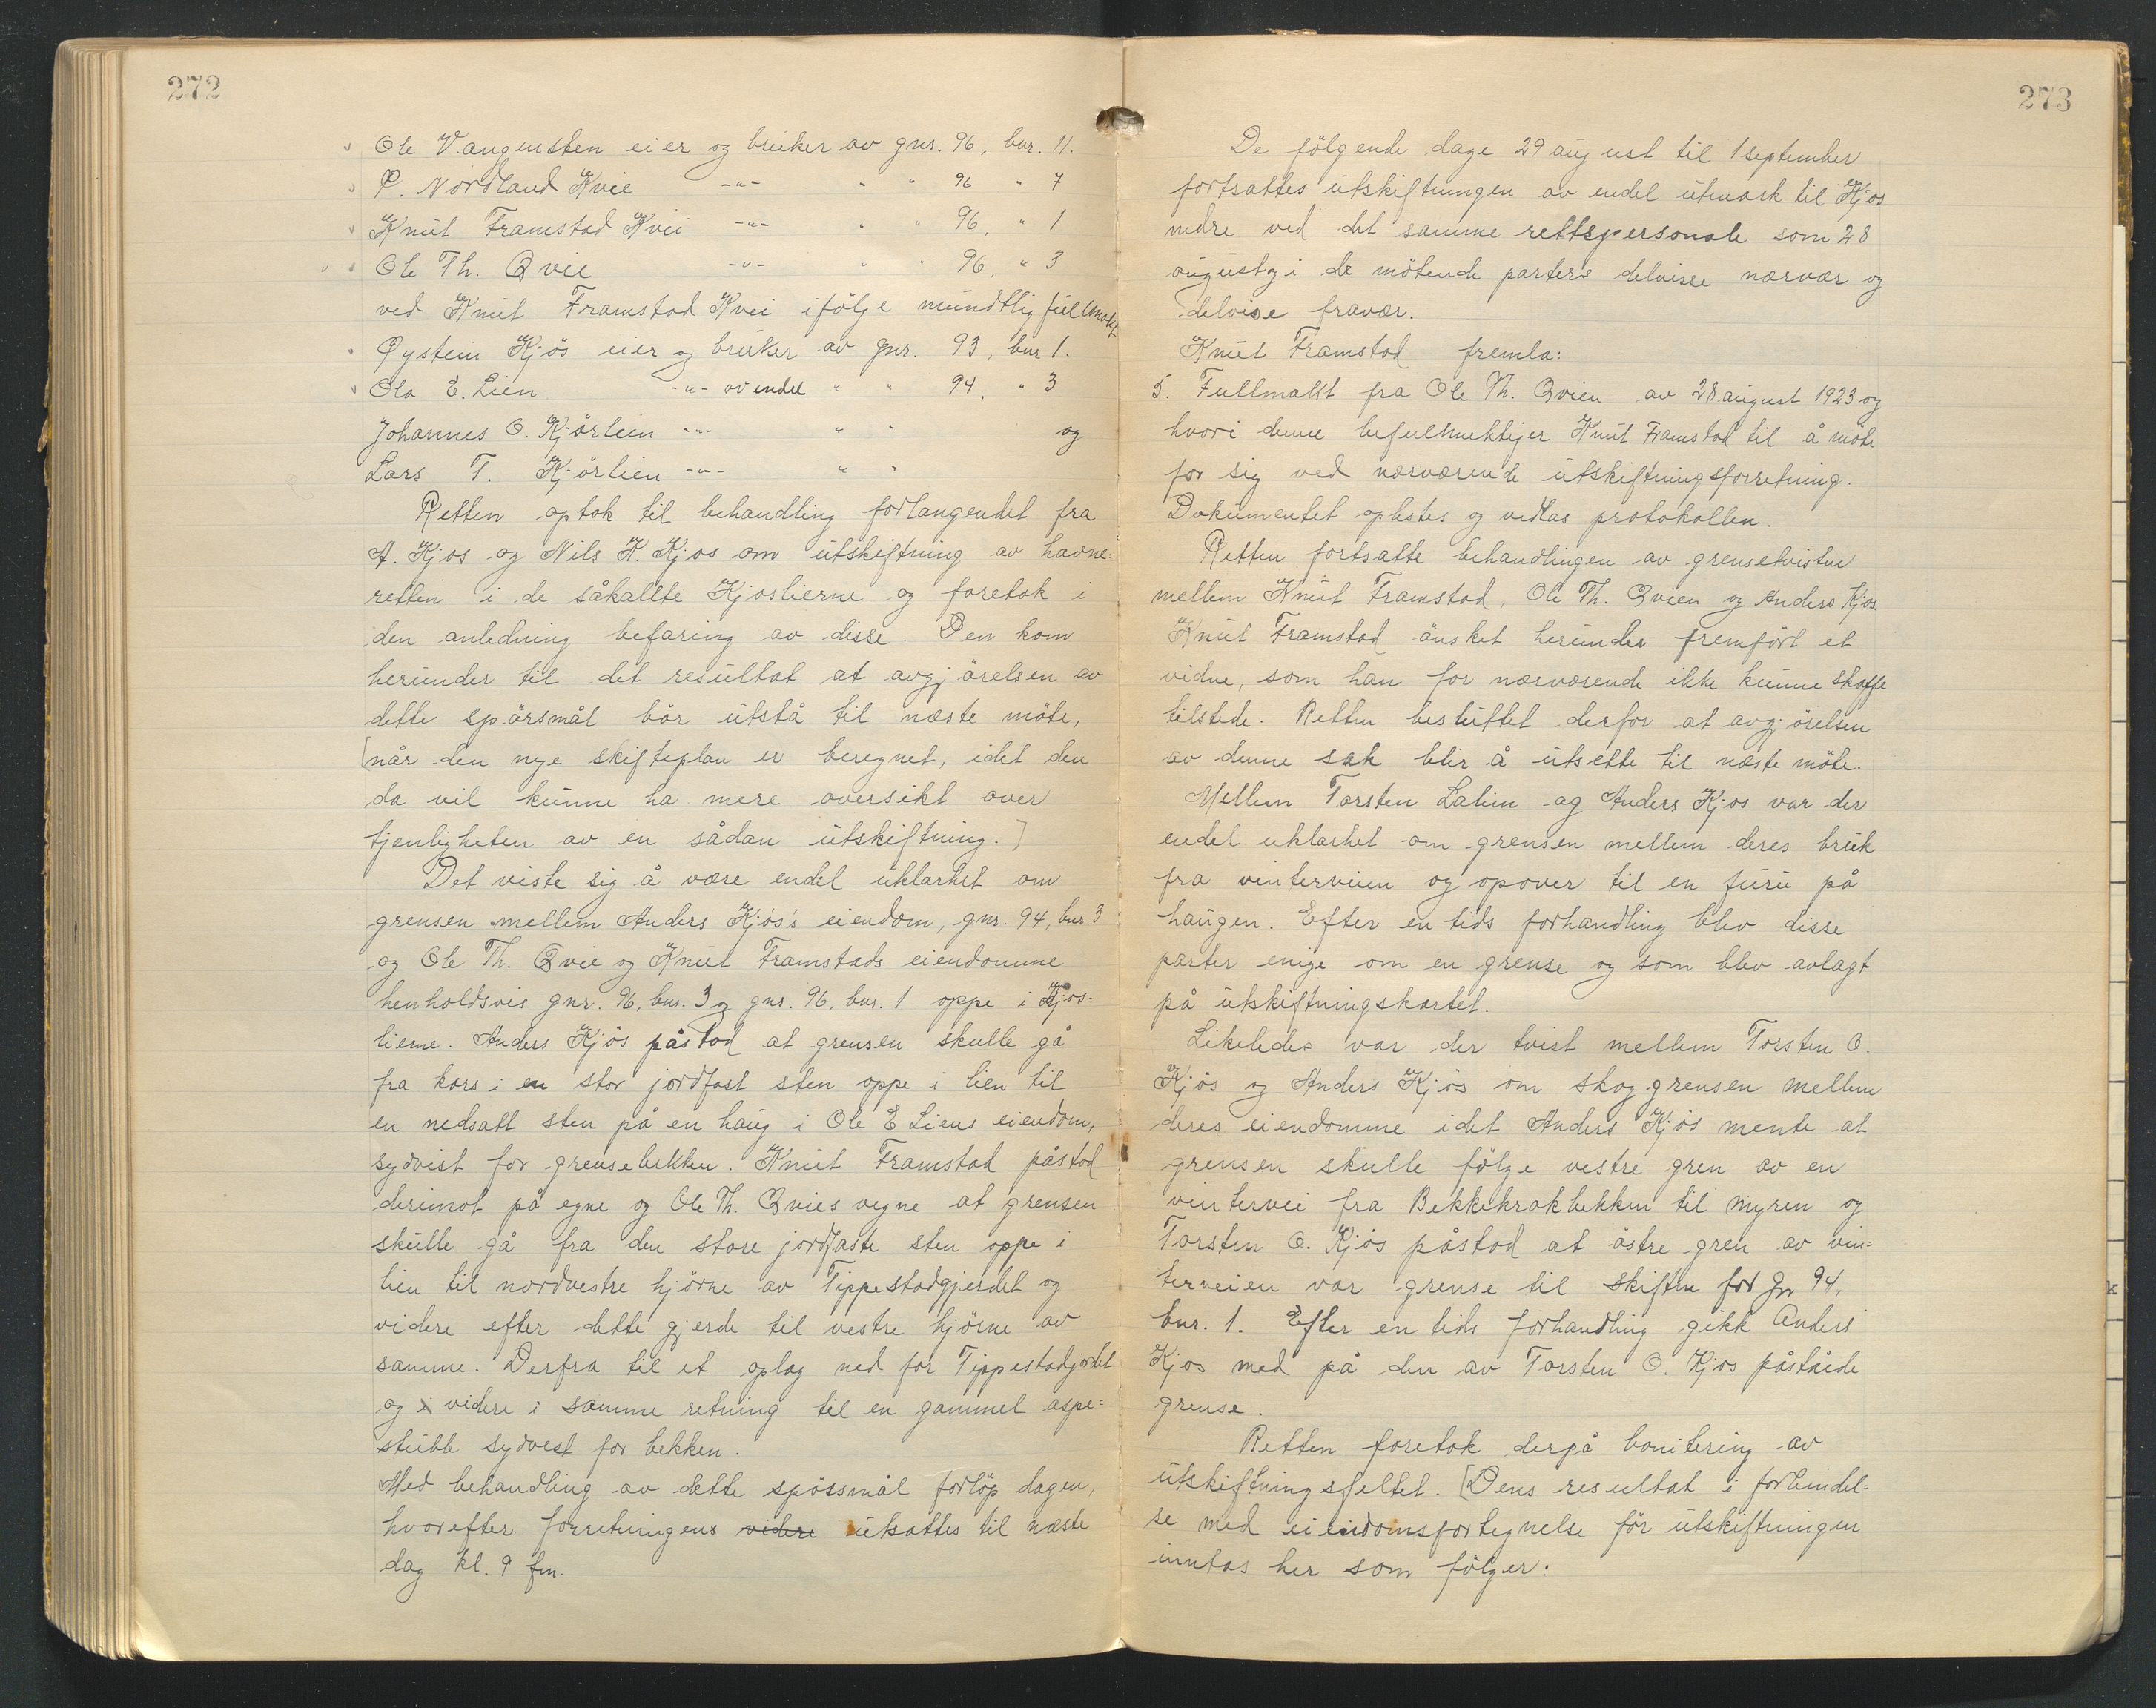 272
Ole Vangensten eier og bruker av gnr. 96, bnr. 11.
P. Nordland Kvie -"- " " 96 " 7
Knut Framstad Kvii -"- " " 96, " 1
Ole Th. Qvie -"- " " 96, " 3
ved Knut Framstad Kvii ifölge mundtlig fullmakt
Øystein Kjös eier og bruker av gnr. 93, bnr 1.
Ola E. Lien -"- av endel " " 94, " 3
Johannes O. Kjörlien -"- " " og
Lars T. Kjörlien -"- " "
Retten optok til behandling forlangendet fra
A. Kjos og Nils K. Kjos om utskiftning av havne=
retten i de såkallte Kjoslierne og foretok i
den anledning befaring av disse. Den kom
herunder til det resultat at avgjörelsen av
dette spörsmål bör utstå til næste möte,
[når den nye skifteplan er beregnet, idet den
da vil kunne ha mere oversikt over
tjenligheten av en sådan utskiftning.]
Det viste sig å være endel uklarhet om
grensen mellem Anders Kjös's eiendom, gnr. 94, bnr. 3
og Ole Th. Qvie og Knut Framstads eiendomme
henholdsvis gnr. 96, bnr. 3 og gnr. 96, bnr. 1 oppe i Kjos=
lierne. Anders Kjös påstod at grensen skulle gå
fra kors i en stor jordfast sten oppe i lien til
en nedsatt sten på en haug i Ole E Liens eiendom,
sydvist for grensebekken. Knut Framstad påstod
derimot på egne og Ole Th. Qvies vegne at grensen
skulle gå fra den store jordfaste sten oppe i
lien til nordvestre hjörne av Tippestadgjerdet og
videre efter dette gjerde til vestre hjörne av
samme. Derfra til et oplag ned for Tippestadjordet
og i videre i samme retning til en gammel aspe=
stubb sydvest for bekken.
Med behandling av dette spössmål forlöp dagen,
hvorefter forretningens videre utsattes til næste
dag kl. 9 fm.
273
De fölgende dage 29 august til 1 september
fortsattes utskiftningen av endel utmark til Kjos
nedre ved det samme rettspersonale som 28
august og i de mötende parters delvisse nærvær og
delvise fravær.
Knut Framstad fremla:
5. Fullmakt fra Ole Th. Qvien av 28 august 1923 og
hvori denne befullmektiger Knut Framstad til å möte
for sig ved nærværende utskiftningsforretning.
Dokumentet oplestes og vedlas protokollen.
Retten fortsatte behandlingen av grensetvisten
mellem Knut Framstad, Ole Th. Qvien og Anders Kjos.
Knut Framstad önsket herunder fremfört et
vidne, som han for nærværende ikke kunne skaffe
tilstede. Retten besluttet derfor at avgjörelsen
av denne sak blir å utsette til næste möte.
Mellem Torsten Lalim og Anders Kjos var der
endel uklarhet om grensen mellem deres bruk
fra vinterveien og opover til en furu på
haugen. Efter en tids forhandling blev disse
parter enige om en grense og som blev avlagt
på utskiftningskartet.
Likeledes var der tvist mellem Torsten O.
Kjös og Anders Kjös om skoggrensen mellem
deres eiendomme idet Anders Kjös mente at
grensen skulle fölge vestre gren av en
vintervei fra Bekkekrakbekken til myren og
Torsten O. Kjös påstod at östre gren av vin=
terveien var grense til skiften for gnr 94,
bnr. 1. Efter en tids forhandling gikk Anders
Kjos med på den av Torsten O. Kjos påståede
grense.
Retten foretok derpå bonitering av
utskiftningsfeltet. [Dens resultat i forbindel=
se med eiendomsfortegnelse för utskiftningen
inntas her som fölger: